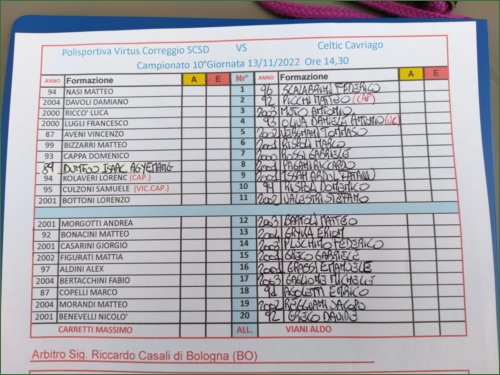 Polisportiva Virtus Correggio SCSD VS Celtic Cavriago
Campionato 10°Giornata 13/11/2022 Ore 14,30
ANNO Formazione A E Nr° ANNO Formazione A E
94 NASI MATTEO 1 96 SCALABRINI FEDERICO
2004 DAVOLI DAMIANO 2 92 PICCHI MATTEO (CAP)
2000 RICCO' LUCA 3 2002 ANTONIO
2000 LUGLI FRANCESCO 4 DANIELE ANTONIO (VC)
87 AVENI VINCENZO 5 TOMMASO
99 BIZZARRI MATTEO 6 MARCO
93 CAPPA DOMENICO 7 ROSSI GABRIELE
89 DUMFOO ISAAC AGYEMANG 8 RICCARDO
94 KOLAVERI LORENC (CAP.) 9
95 CULZONI SAMUELE (VIC.CAP.) 10 DOMENICO
2001 BOTTONI LORENZO 11 2002 VALESTRI STEFANO
2001 MORGOTTI ANDREA 12 2003 MATTEO
92 BONACINI MATTEO 13
2001 CASARINI GIORGIO 14 FEDERICO
2002 FIGURATI MATTIA 15 GRECO GABRIELE
97 ALDINI ALEX 16 GRASSI EMANUELE
2004 BERTACCHINI FABIO 17 2003 MICHELE
87 COPELLI MARCO 18 ENRICO
2004 MORANDI MATTEO 19 2002 REGGIANI JACOPO
2001 BENEVELLI NICOLO' 20 92 GRECO DAVIDE
CARRETTI MASSIMO ALL. VIANI ALDO
Arbitro Sig. Riccardo Casali di Bologna (BO)